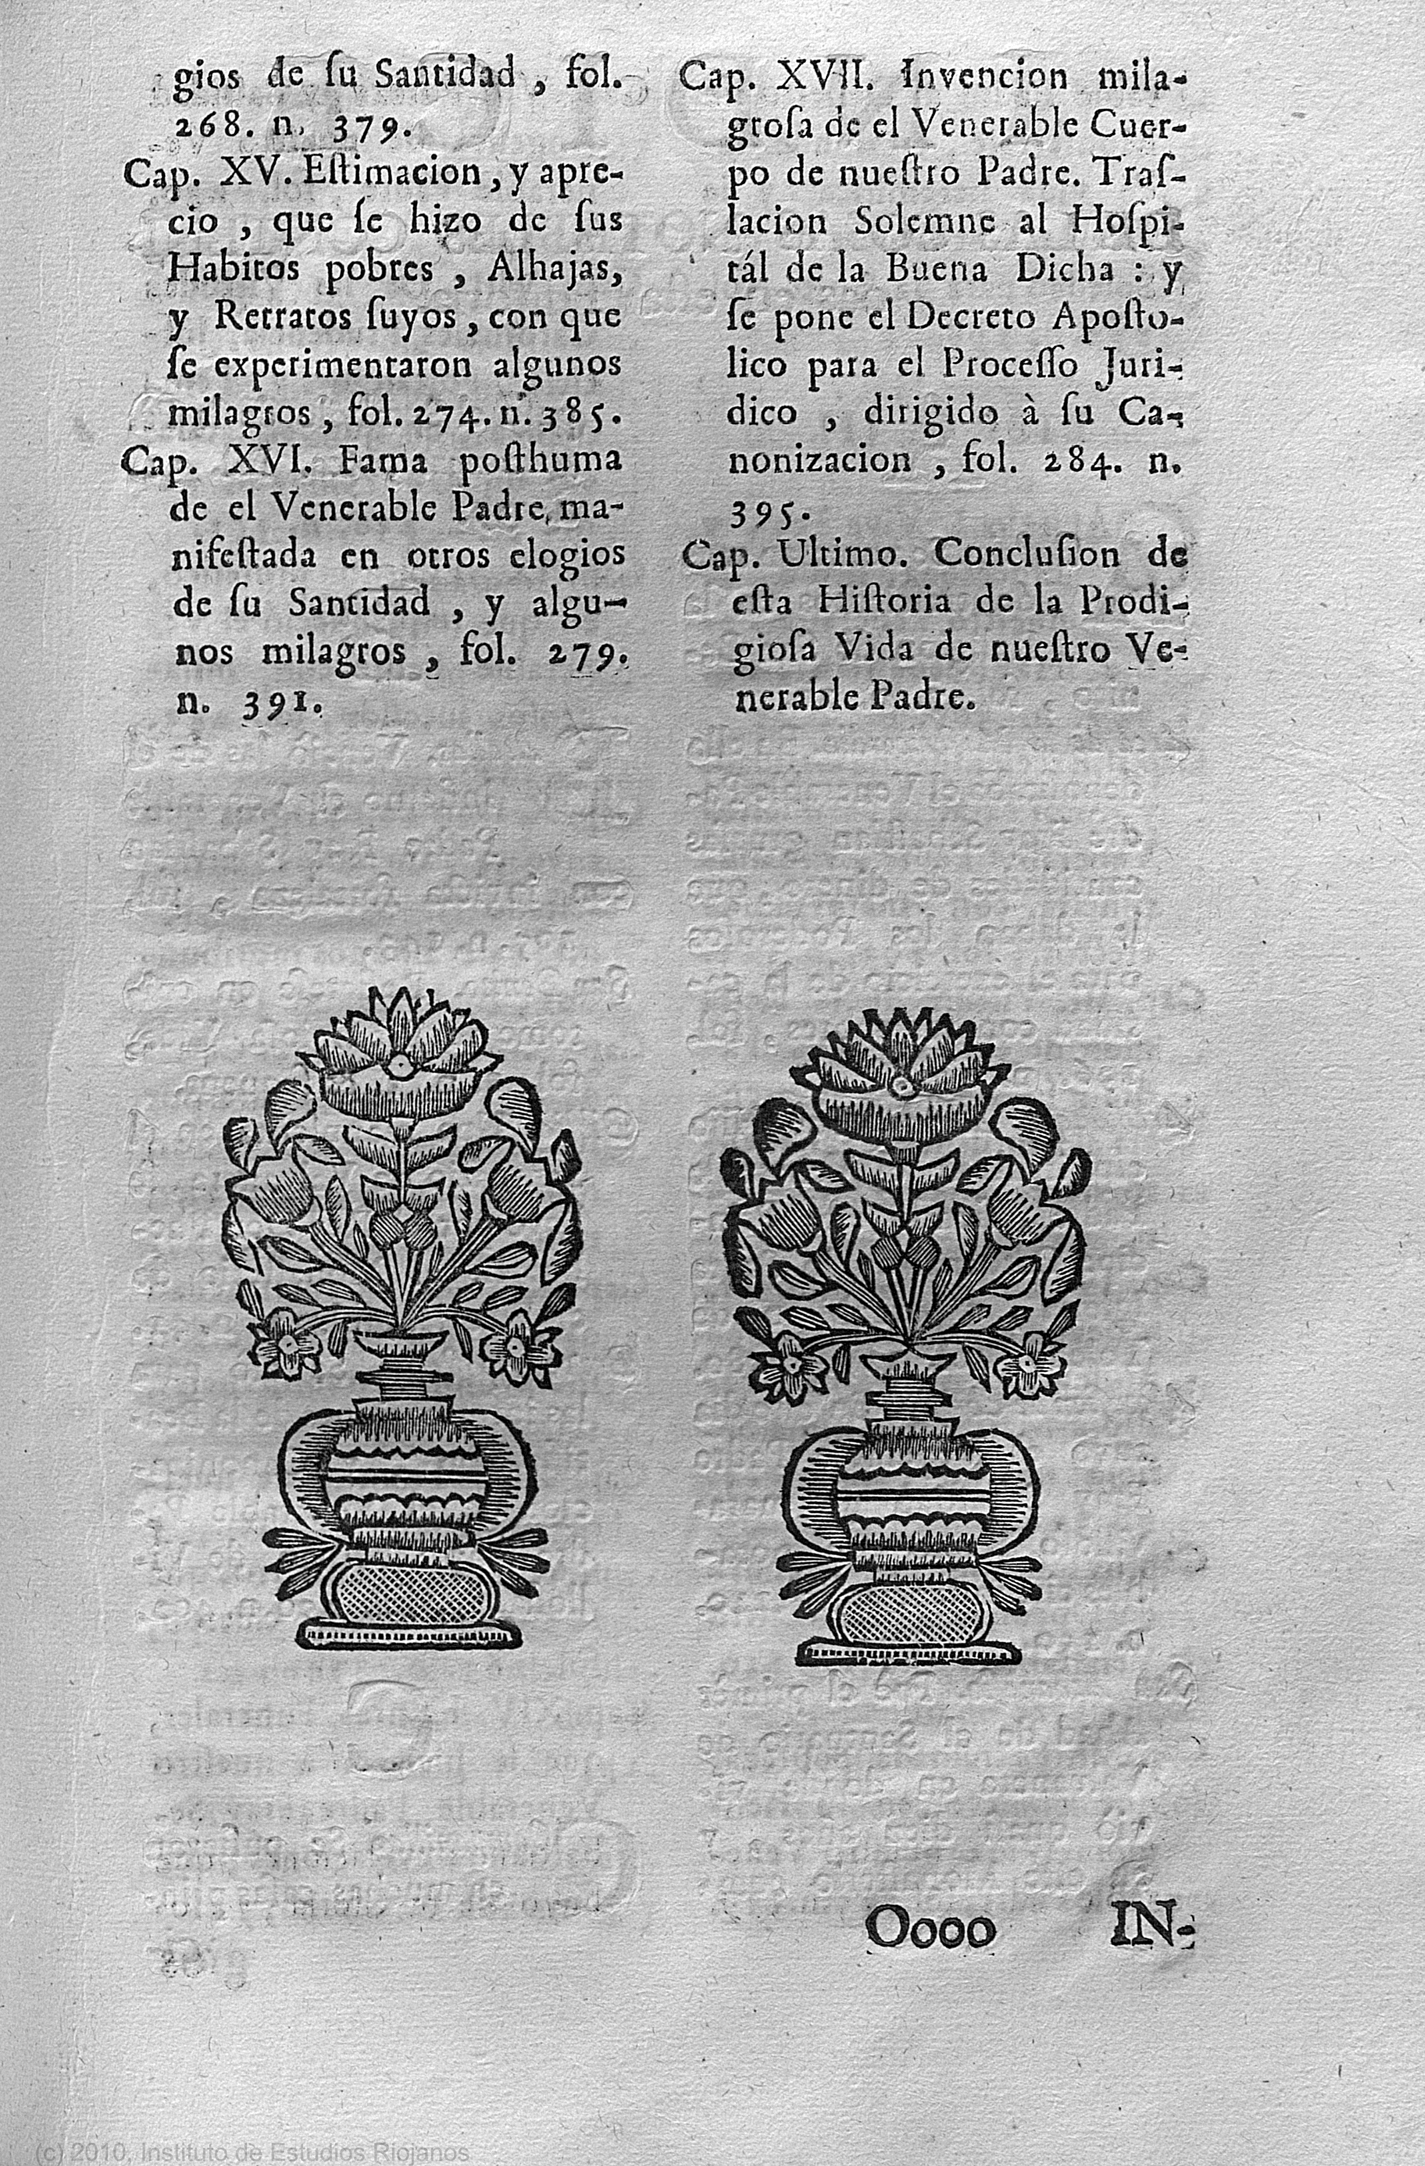 gios de ſu Santidad, fol.
268. n. 379.
Cap. XV. Eſtimacion, y apre-
cio, que ſe hizo de ſus
Habitos pobres, Alhajas,
y Retratos ſuyos, con que
ſe experimentaron algunos
milagros, fol. 274. n. 385.
Cap. XVI. Fama poſthuma
de el Venerable Padre, ma-
nifeſtada en otros elogios
de ſu Santidad, y algu-
nos milagros, fol. 279.
n. 391.
Cap. XVII. Invencion mila-
groſa de el Venerable Cuer-
po de nueſtro Padre. Traſ-
lacion Solemne al Hoſpi-
tál de la Buena Dicha : y
ſe pone el Decreto Apoſto-
lico para el Proceſſo Juri-
dico, dirigido à ſu Ca-
nonizacion, fol. 284. n.
395.
Cap. Ultimo. Concluſion de
eſta Hiſtoria de la Prodi-
gioſa Vida de nueſtro Ve-
nerable Padre.
Oooo IN-
(c) 2010, Instituto de Estudios Riojanos